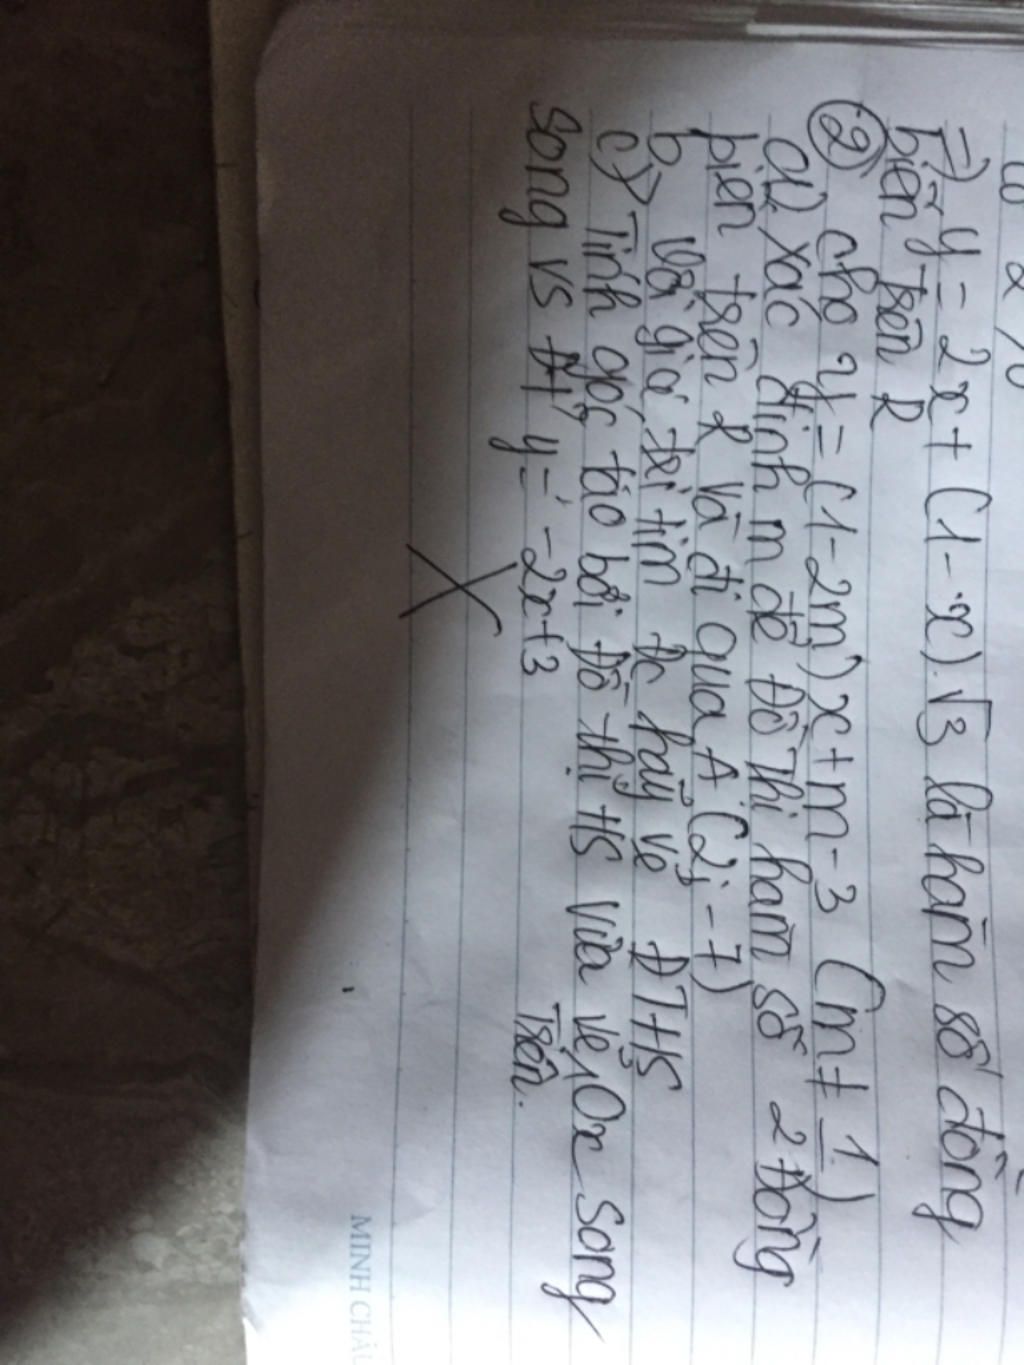 =) y = 2x + (1-x).√3 là hàm số đồng
biến trên R
② cho y = (1-2m)x+m-3 (m≠ 1/2)
a) xác định m để Đồ Thị hàm số Đồng
biến trên R và đi qua A (2; -7)
b) Với giá trị tìm đc hãy vẽ ĐTHS
c) Tính góc tạo bởi đồ thị HS vừa vẽ, Ox song
song vs Đt y = -2x+3 Trên.
MINH CHÂU